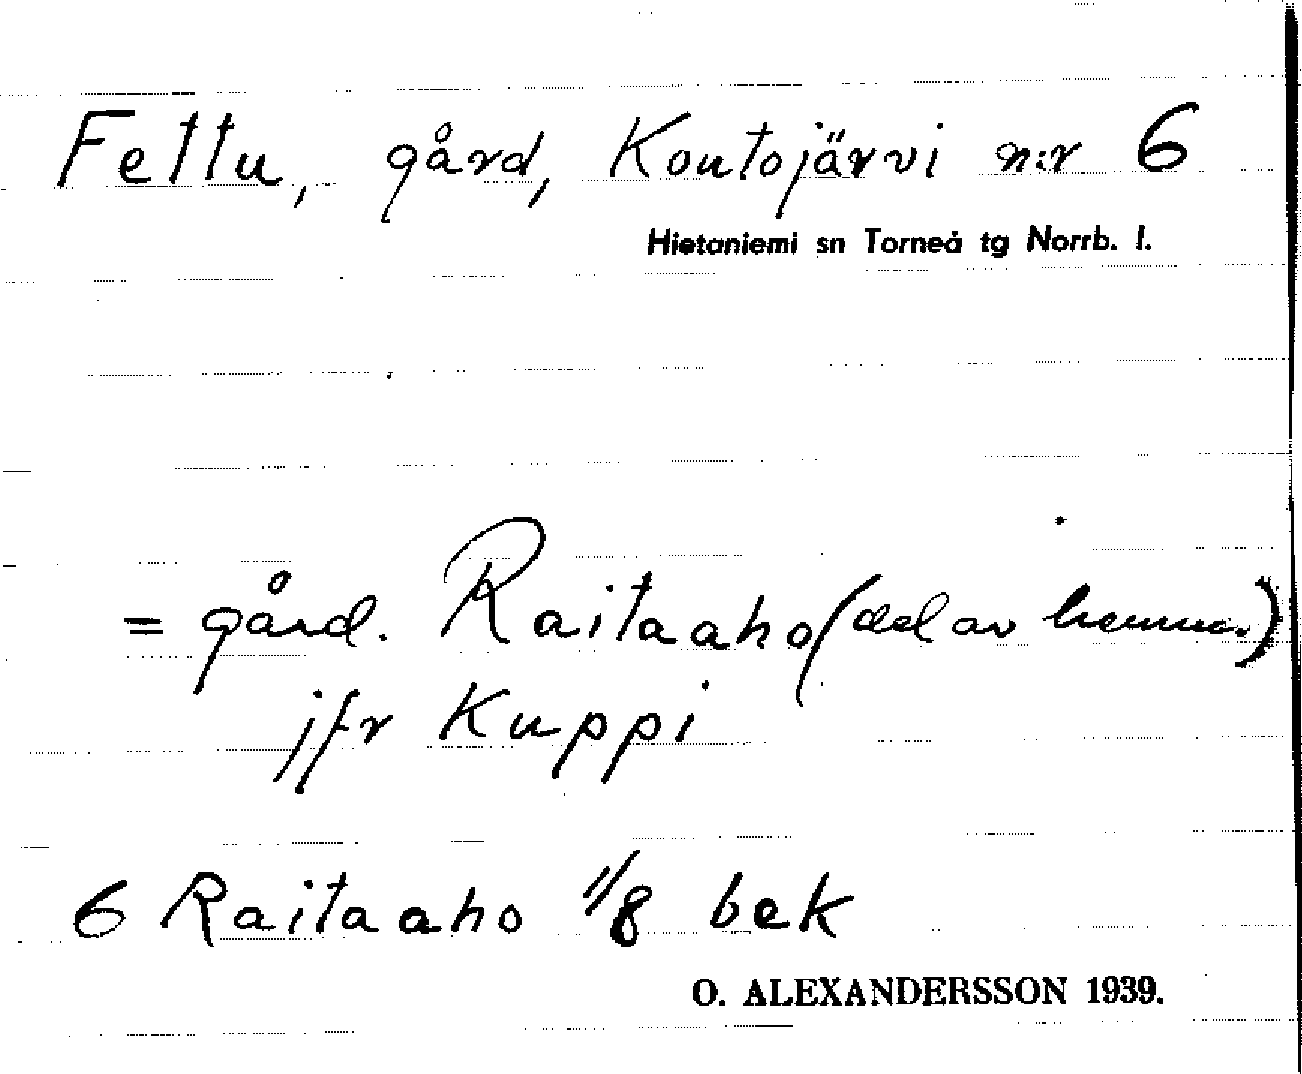 Fettu, gård, Koutojärvi n:r 6
Hietaniemi sn Torneå tg Norrb. l.
= gård. Raitaaho (del av hemma.)
jfr Kuppi
6 Raitaaho 11/8 bek
O. ALEXANDERSSON 1939.